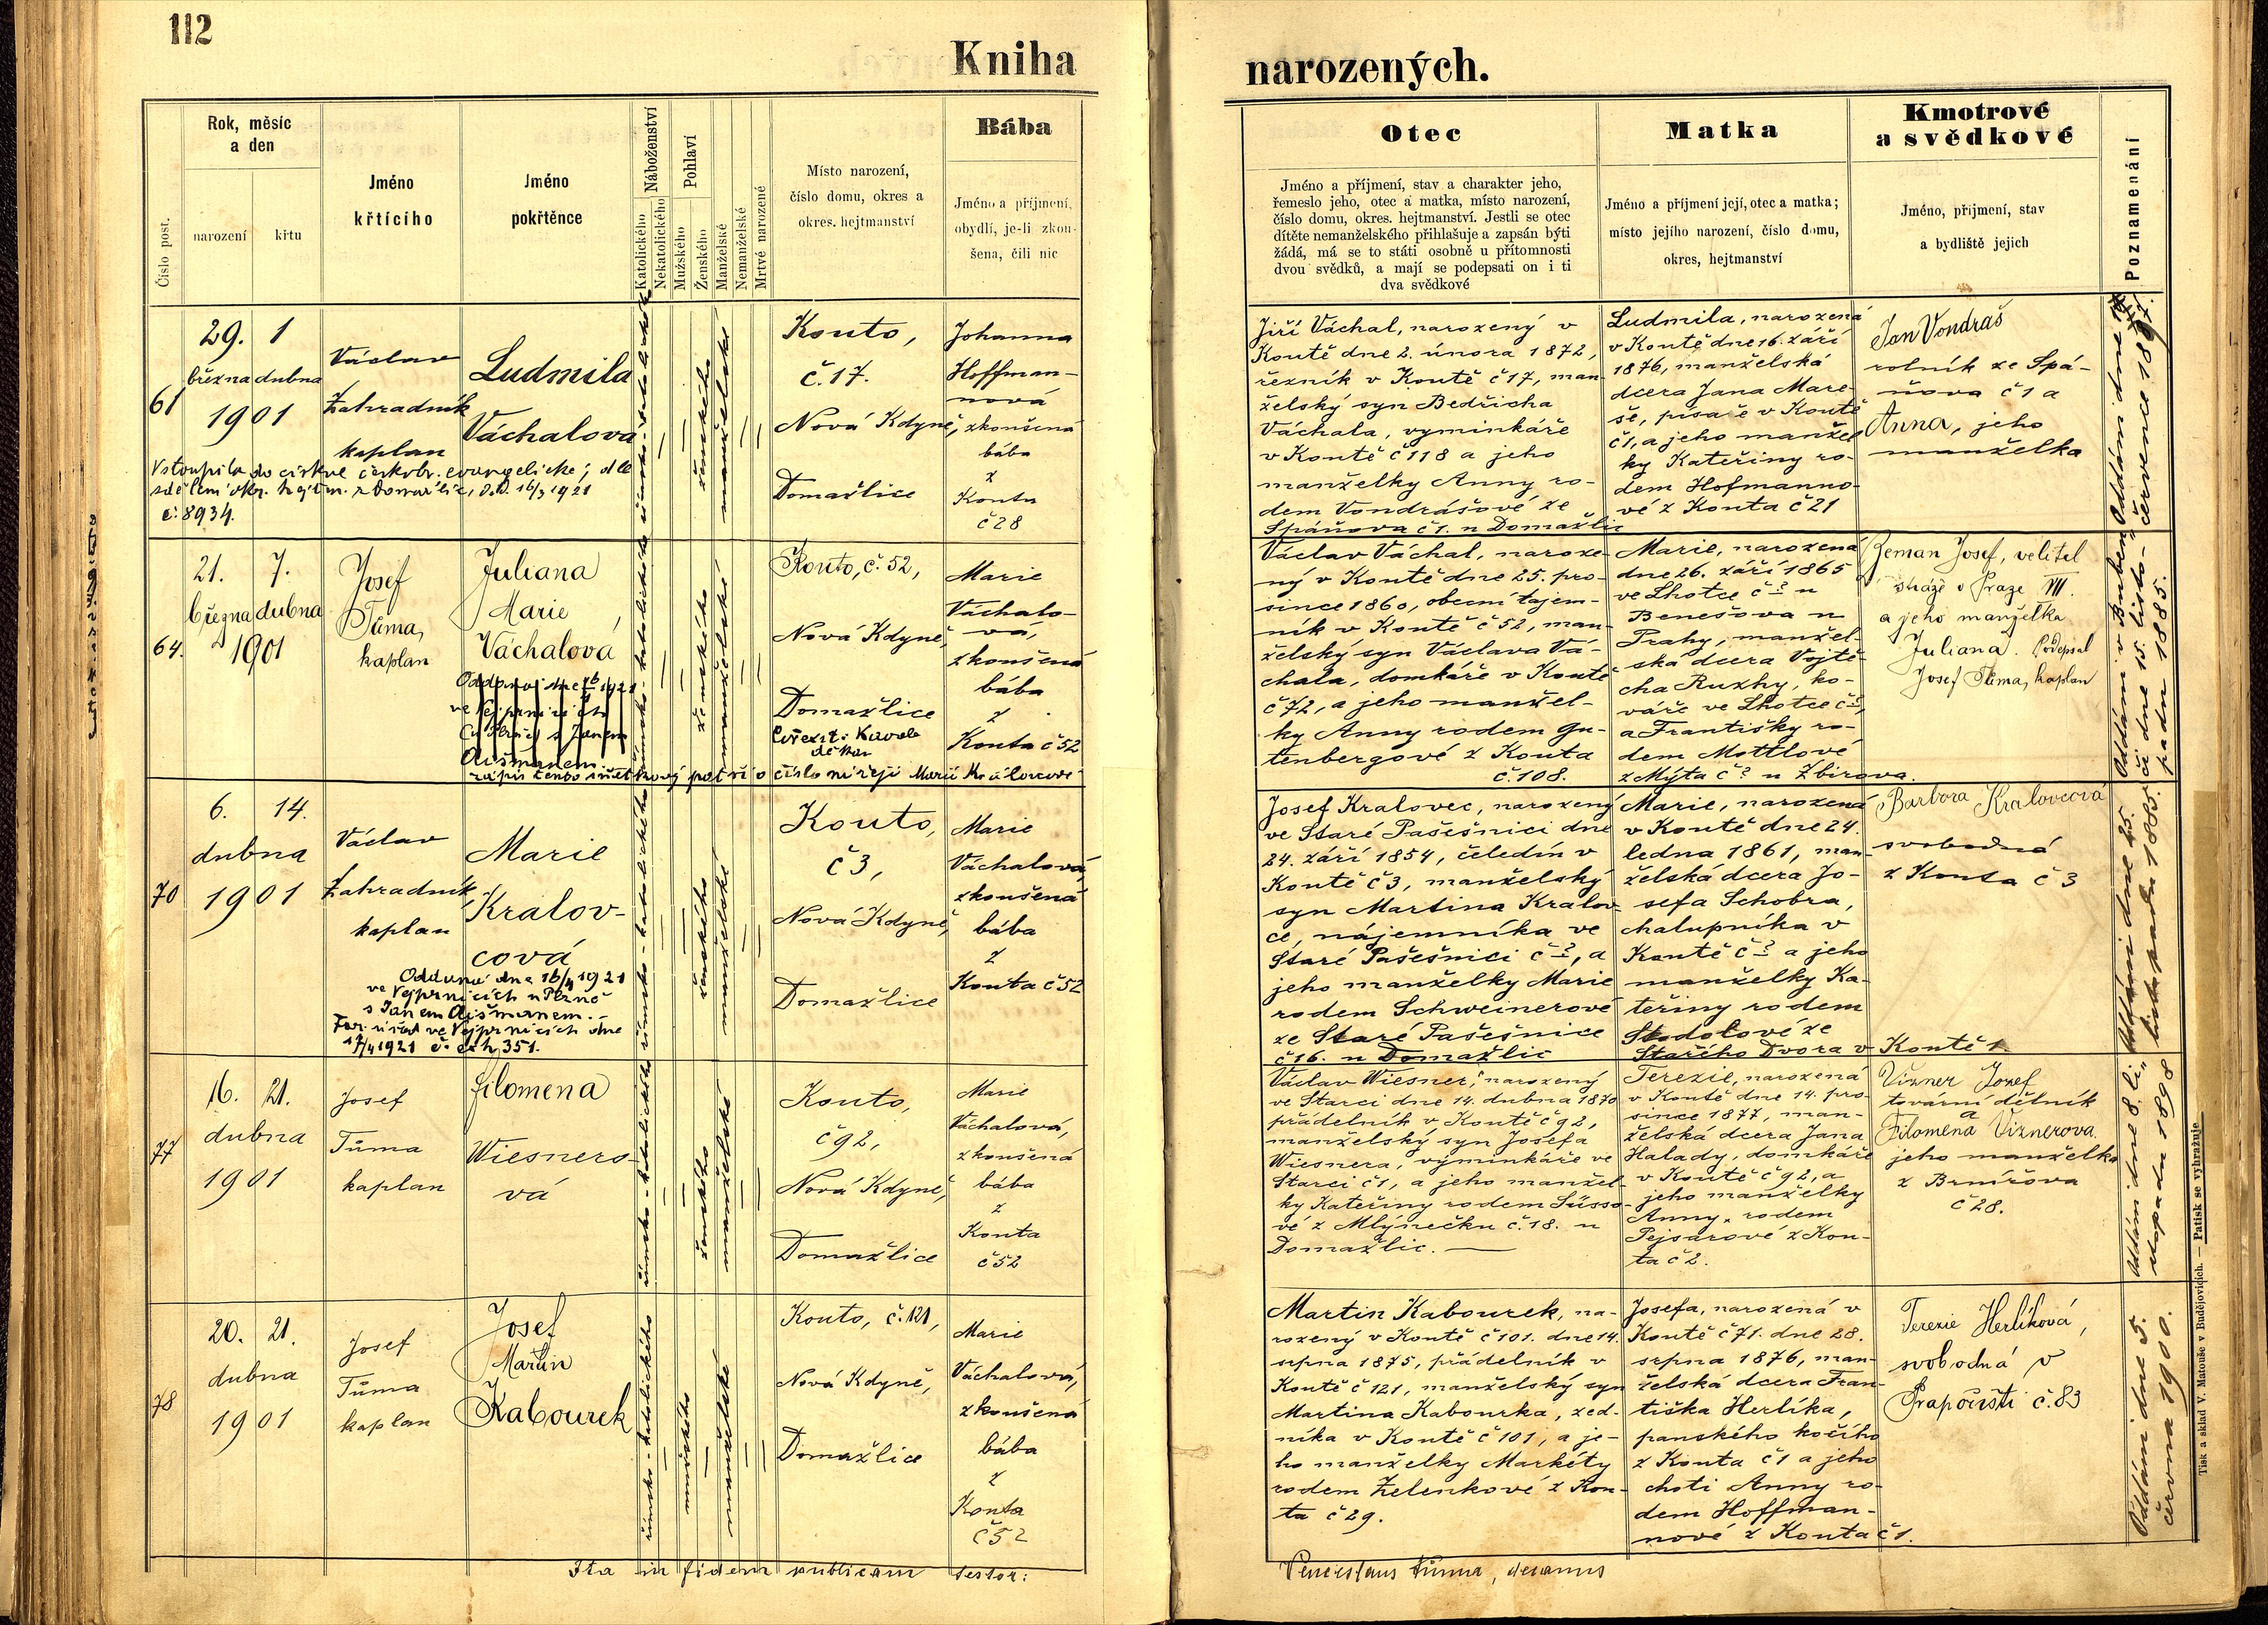 112
Kniha
narozených.
Číslo post.
Rok, měsíc
a den
narození
křtu
Jméno
křtícího
Jméno
pokřtěnce
Náboženství
Katolického
Nekatolického
Pohlaví
Mužského
Ženského
Manželské
Nemanželské
Mrtvě narozené
Místo narození,
číslo domu, okres a
okres. hejtmanství
Bába
Jméno a příjmení,
obydlí, je-li zkou-
šena, čili nic
Otec
Jméno a příjmení, stav a charakter jeho,
řemeslo jeho, otec a matka, místo narození,
číslo domu, okres. hejtmanství. Jestli se otec
dítěte nemanželského přihlašuje a zapsán býti
žádá, má se to státi osobně u přítomnosti
dvou svědků, a mají se podepsati on i ti
dva svědkové
Matka
Jméno a příjmení její, otec a matka;
místo jejího narození, číslo domu,
okres, hejtmanství
Kmotrové
a svědkové
Jméno, příjmení, stav
a bydliště jejich
Poznamenání
61
29. 1
března dubna
1901
Václav
Zahradník
kaplan
Ludmila
Váchalova
Vstoupila do církve českobr. evangelické; dle
sdělení okr. hejtm. z Domažlic, d.d. 16/3 1921
č. 8934.
římsko-katolického
ženského
manželské
Kouto,
č. 17.
Nová Kdyně,
Domažlice
Johanna
Hoffman-
nová
zkoušená
bába
z
Kouta
č 28
Jiří Váchal, narozený v
Koutě dne 2. února 1872,
řezník v Koutě č 17, man-
želský syn Bedřicha
Váchala, vyminkáře
v Koutě č 118 a jeho
manželky Anny ro-
dem Vondrášové ze
Spáňova č 1. u Domažlic
Ludmila, narozená
v Koutě dne 16. září
1876, manželská
dcera Jana Mare-
še, písaře v Koutě
č 1, a jeho manžel
ky Kateřiny ro-
dem Hofmanno-
vé z Kouta č 21
Jan Vondraš
rolník ze Spá-
ňova č 1 a
Anna, jeho
manželka
července 1897.
64.
21. 7.
března dubna
1901
Josef
Tůma,
kaplan
Juliana
Marie,
Váchalová
zápis tento
číslo
římsko-katolického
ženského
manželské
Kouto, č. 52,
Nová Kdyně,
Domažlice
Marie
Váchalo-
vá,
zkoušená
bába
z
Kouta č 52
Václav Váchal, naroze-
ný v Koutě dne 25. pro-
since 1860, obecní tajem-
ník v Koutě č 52, man-
želský syn Václava Vá-
chala, domkáře v Koutě
č 72, a jeho manžel-
ky Anny rodem Gu-
tenbergové z Kouta
č. 108.
Marie, narozená
dne 26. září 1865
ve Lhotce č ? u
Benešova u
Prahy, manžel-
ská dcera Vojtě-
cha Ruzhy, ko-
váře ve Lhotce č ?,
a Františky ro-
dem Mottlové
z Mýta č ? u Zbirova.
Zeman Josef, velitel
stráže v Praze VIII.
a jeho manželka
Juliana. Podepsal
Josef Tůma, kaplan
Oddáni v Bubenči dne 15. listo-
padu 1885.
70
6. 14.
dubna
1901
Václav
Zahradník
kaplan
Marie
Kralov-
cová
Oddaná dne 16/4 1921
ve Vejprnicích u Plzně
s Janem Aišmanem.
Far. úřad ve Vejprnicích dne
17/4 1921 č. exh. 351.
římsko-katolického
ženského
manželské
Kouto,
č 3,
Nová Kdyně,
Domažlice
Marie
Váchalová
zkoušená
bába
z
Kouta č 52
Josef Kralovec, narozený
ve Staré Pašešnici dne
24. září 1854, čeledín v
Koutě č 3, manželský
syn Martina Kralov-
ce, nájemníka ve
Staré Pašešnici č ?, a
jeho manželky Marie
rodem Schweinerové
ze Staré Pašešnice
č 16. u Domažlic
Marie, narozená
v Koutě dne 24.
ledna 1861, man-
želská dcera Jo-
sefa Schobra,
chalupníka v
Koutě č ? a jeho
manželky Ka-
teřiny rodem
Stodolové ze
Starího Dvora v Koutě 1.
Barbora Kralovcová
svobodná
z Kouta č 3
Oddáni dne 25.
listopadu 1885.
77
16. 21.
dubna
1901
Josef
Tůma
kaplan
Filomena
Wiesnero-
vá
římsko-katolického
ženského
manželské
Kouto,
č 92,
Nová Kdyně,
Domažlice
Marie
Váchalová,
zkoušená
bába
z
Kouta
č 52
Václav Wiesner, narozený
ve Starci dne 14. dubna 1870
přádelník v Koutě č 92,
manželský syn Josefa
Wiesnera, výminkáře ve
Starci č 1, a jeho manžel-
ky Kateřiny rodem Süsso-
vé z Mlýnečku č. 18. u
Domažlic.
Terezie, narozená
v Koutě dne 14. pro-
since 1877, man-
želská dcera Jana
Halady, domkáře
v Koutě č 92, a
jeho manželky
Anny, rodem
Pejsarové z Kou-
ta č 2.
Vizner Josef
tovární dělník
a
Filomena Viznerova.
jeho manželka
z Brnířova
č 28.
Oddáni dne 8. li-
stopadu 1898
78
20. 21.
dubna
1901
Josef
Tůma
kaplan
Josef
Martin
Kabourek
římsko-katolického
mužského
manželské
Kouto, č. 121,
Nová Kdyně,
Domažlice
Marie
Váchalová,
zkoušená
bába
z
Kouta
č 52
Martin Kabourek, na-
rozený v Koutě č 101. dne 14.
srpna 1875, přádelník v
Koutě č 121, manželský syn
Martina Kabourka, zed-
níka v Koutě č 101, a je-
ho manželky Markéty
rodem Zelenkové z Kou-
ta č 29.
Josefa, narozená v
Koutě č 71. dne 28.
srpna 1876, man-
želská dcera Fran-
tiška Herlíka,
panského kočího
z Kouta č 1 a jeho
choti Anny ro-
dem Hoffman-
nové z Kouta č 1.
Terezie Herlíková,
svobodná v
Prapořišti č. 83
Oddáni dne 5.
června 1900.
Ita in fidem publicam testor:
Venceslaus Tůma, decanus
Tisk a sklad V. Matouše v Budějovicích. — Patisk se vyhražuje.